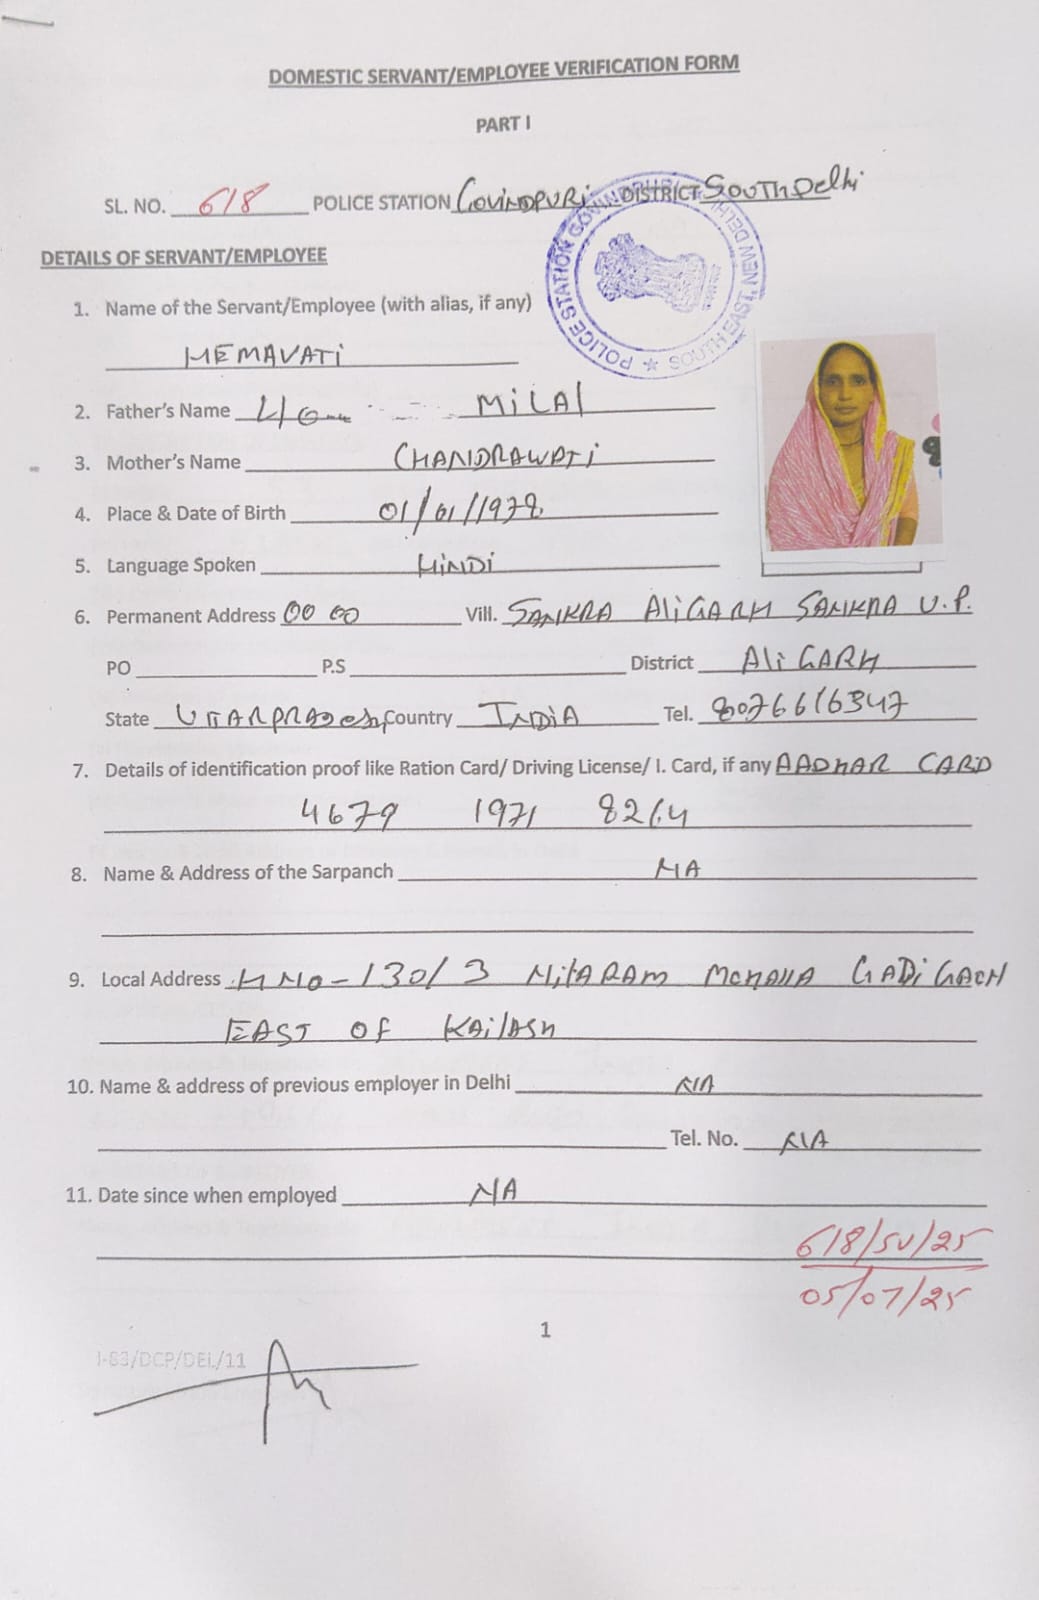 DOMESTIC SERVANT/EMPLOYEE VERIFICATION FORM
PART I
SL. NO. 618 POLICE STATION GOVINDPURI DISTRICT SOUTH Delhi
POLICE STATION GOVINDPURI SOUTH EAST, NEW DELHI
DETAILS OF SERVANT/EMPLOYEE
1. Name of the Servant/Employee (with alias, if any)
HEMAVATi
2. Father's Name MiLAl
3. Mother's Name CHANDRAWATi
4. Place & Date of Birth 01/01/1978
5. Language Spoken HiNDi
6. Permanent Address 00 00 Vill. SANKRA AliGARH SANKRA U.P.
PO P.S District AliGARH
State UTTARPRADESH Country INDiA Tel. 8076616347
7. Details of identification proof like Ration Card/ Driving License/ I. Card, if any AADHAR CARD
4679 1971 8214
8. Name & Address of the Sarpanch NA
9. Local Address H NO-130/3 MOHAllA GADi
EAST OF KAilASH
10. Name & address of previous employer in Delhi NA
Tel. No. NA
11. Date since when employed NA
618/SV/25
05/07/25
1
I-83/DCP/DEL/11